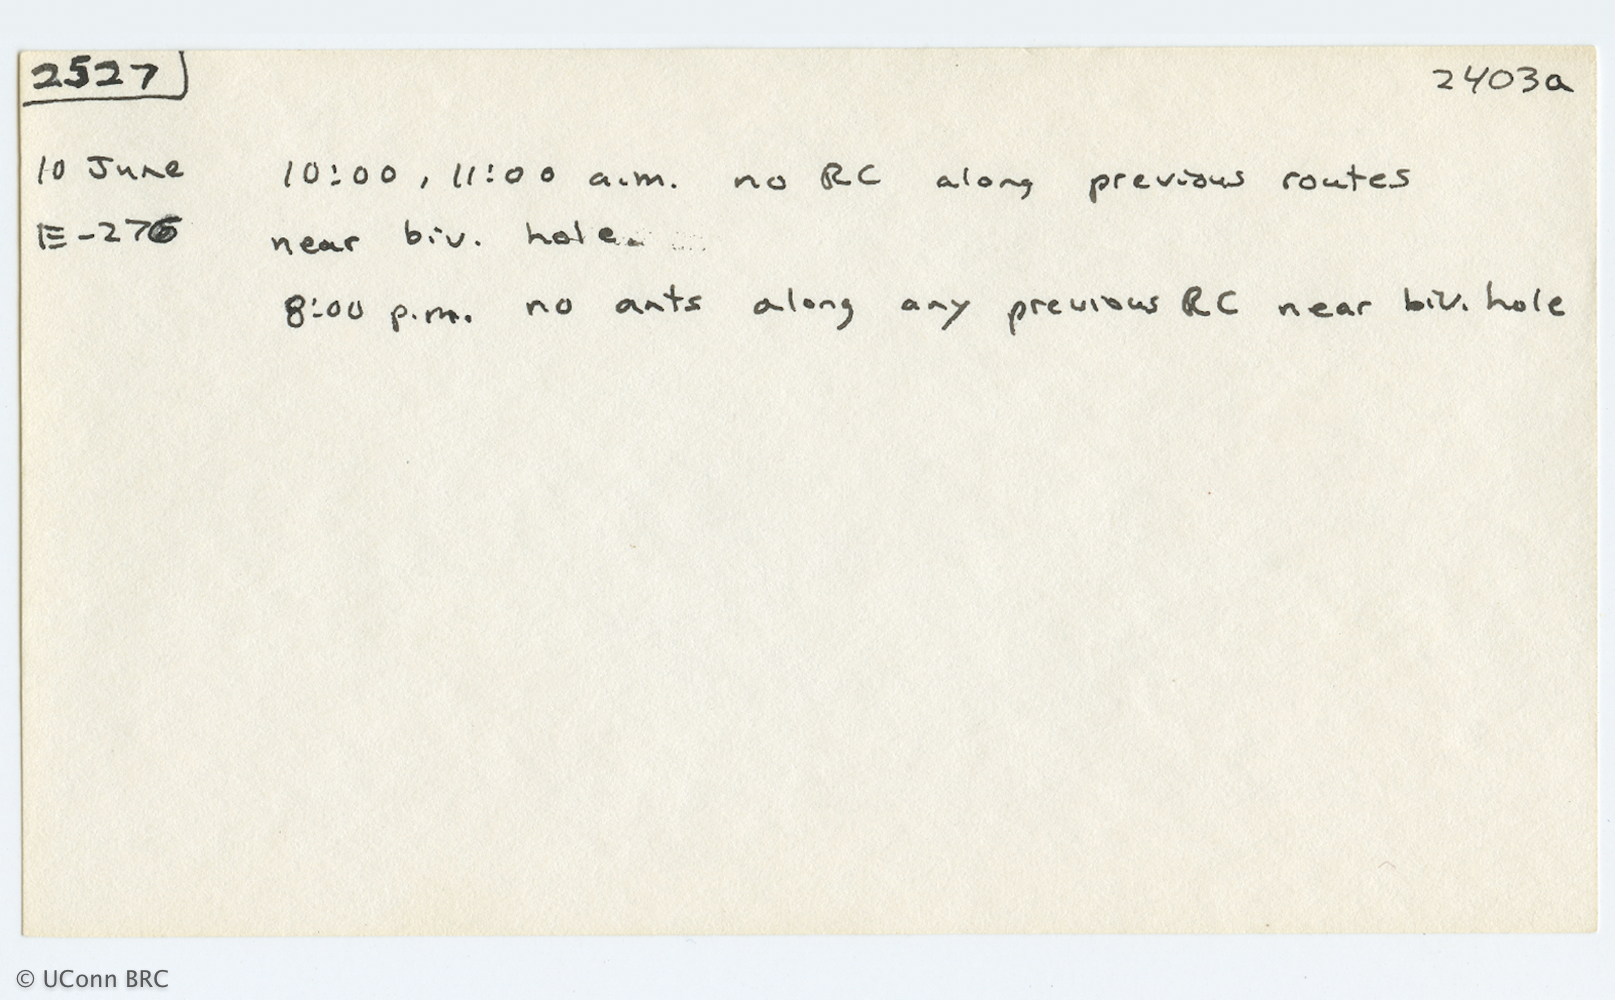 2527
2403a
10 June 10:00, 11:00 a.m. no RC along previous routes
E-276 near biv. hole.
8:00 p.m. no ants along any previous RC near biv. hole
© UConn BRC